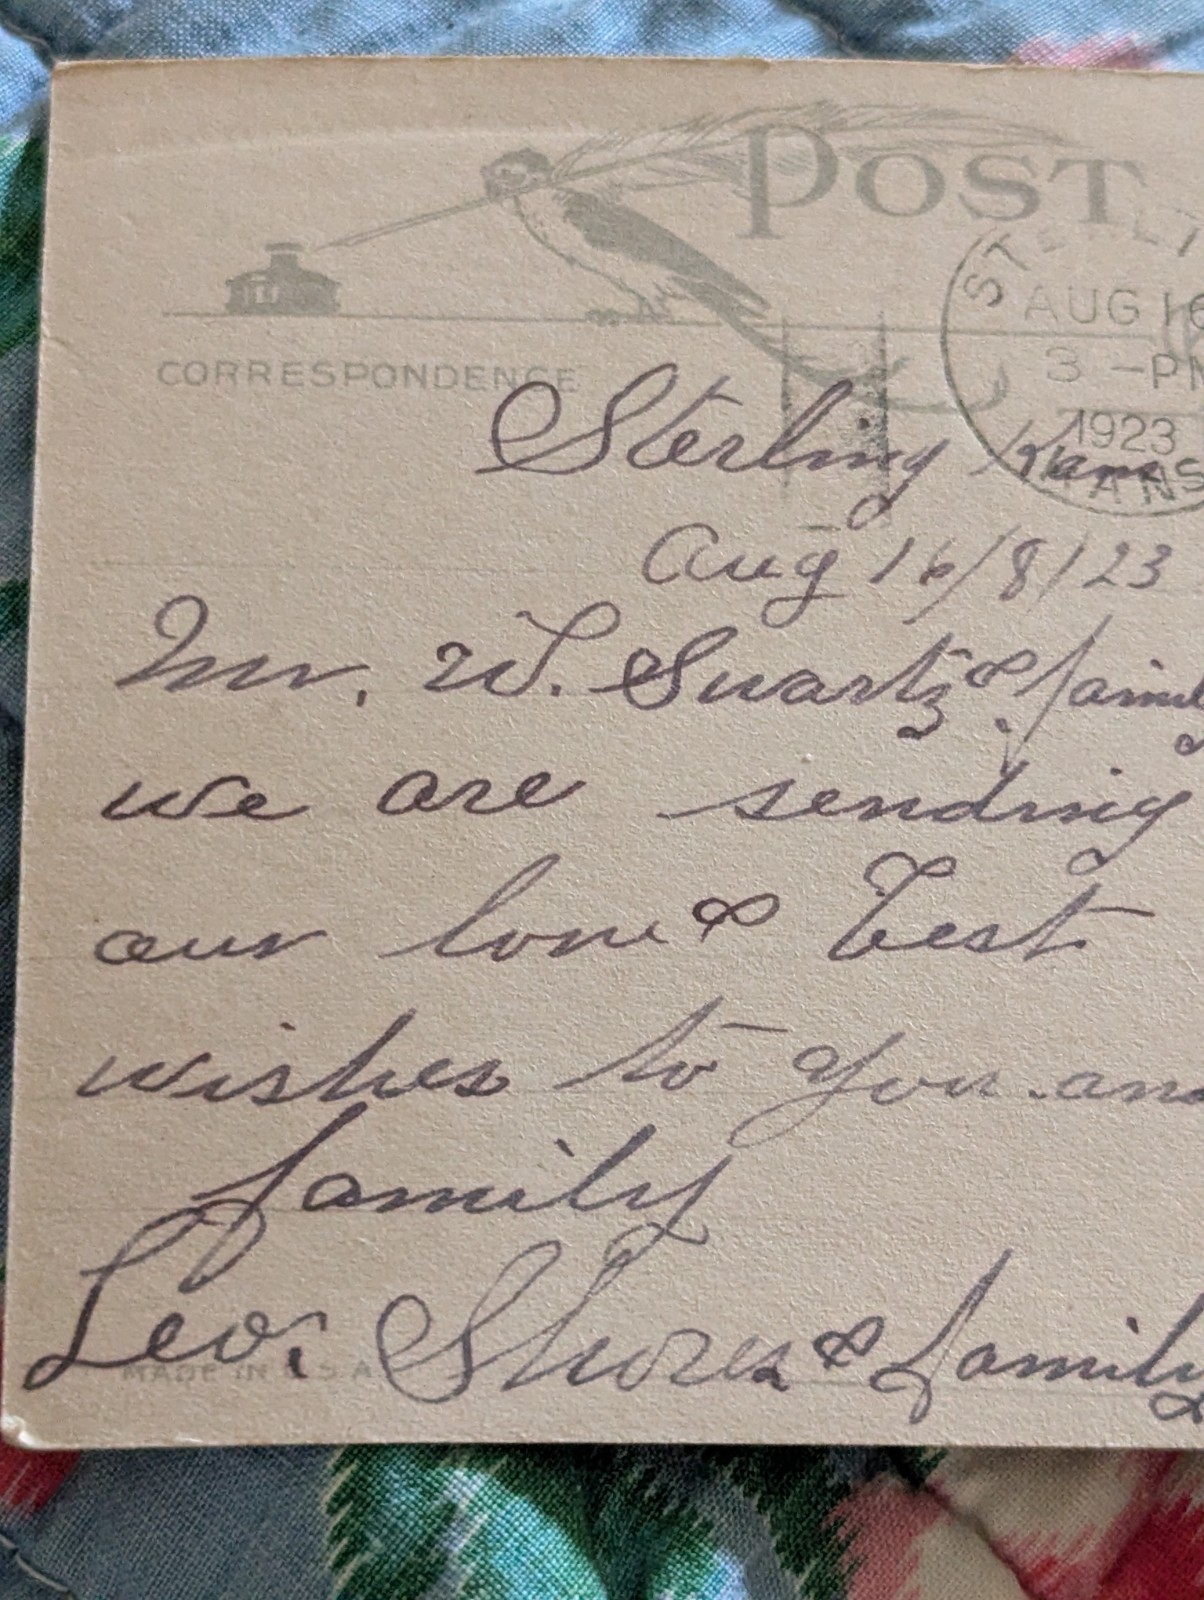 POST
STERLI
AUG 16
3 -PM
1923
KANS
CORRESPONDENCE
Sterling Kans
Aug 16/8/23
Mr. W. Swartz & family
we are sending
our love & best
wishes to you. and
family
Leo. Shores & family
MADE IN U.S.A.